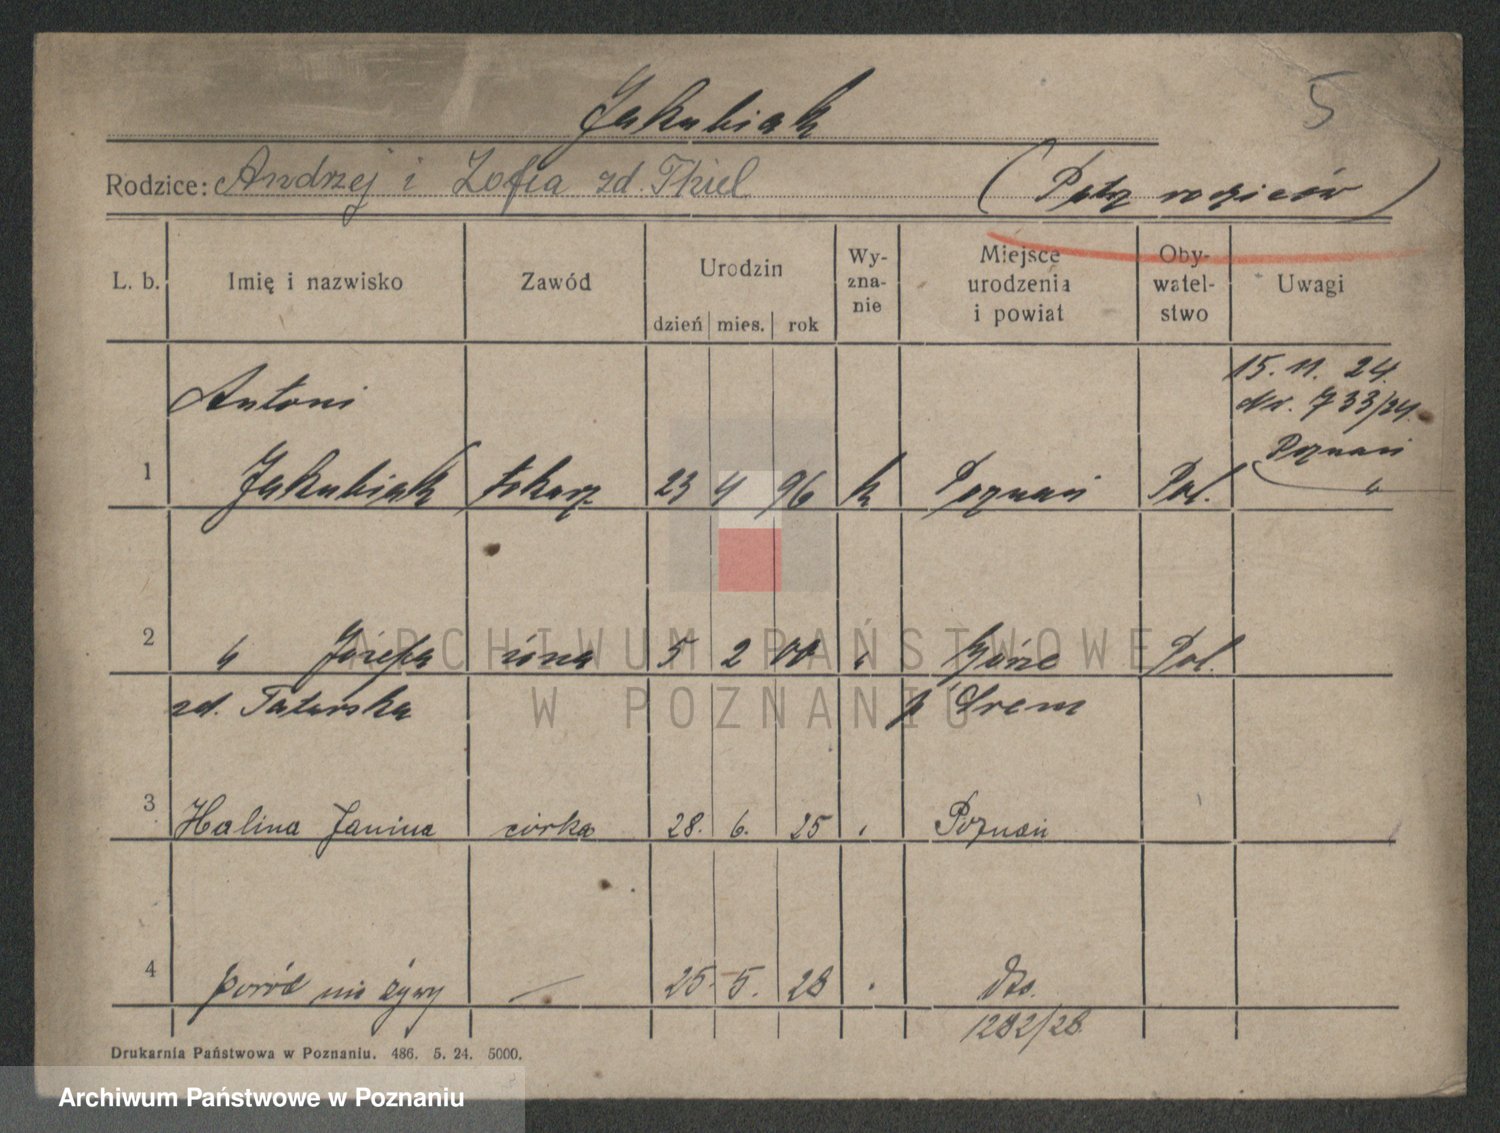 5
Jakubiak
Rodzice: Andrzej i Zofia zd. Thiel (Patrz rodziców)
L. b. Imię i nazwisko Zawód Urodzin dzień mies. rok Wy-zna-nie Miejsce urodzenia i powiat Oby-watel-stwo Uwagi
15. 11. 24.
Antoni Nr. 733/24.
Poznań
1 Jakubiak tokarz 23 4 96 k Poznań Pol. "
2 " Józefa żona 5 2 00 " Górze Pol.
zd. Tatarska p Śrem
3 Halina Janina córka 28. 6. 25 " Poznań
4 poród nie żywy — 25. 5. 28 " dto.
1282/28
Drukarnia Państwowa w Poznaniu. 486. 5. 24. 5000.
ARCHIWUM PAŃSTWOWE
W POZNANIU
Archiwum Państwowe w Poznaniu